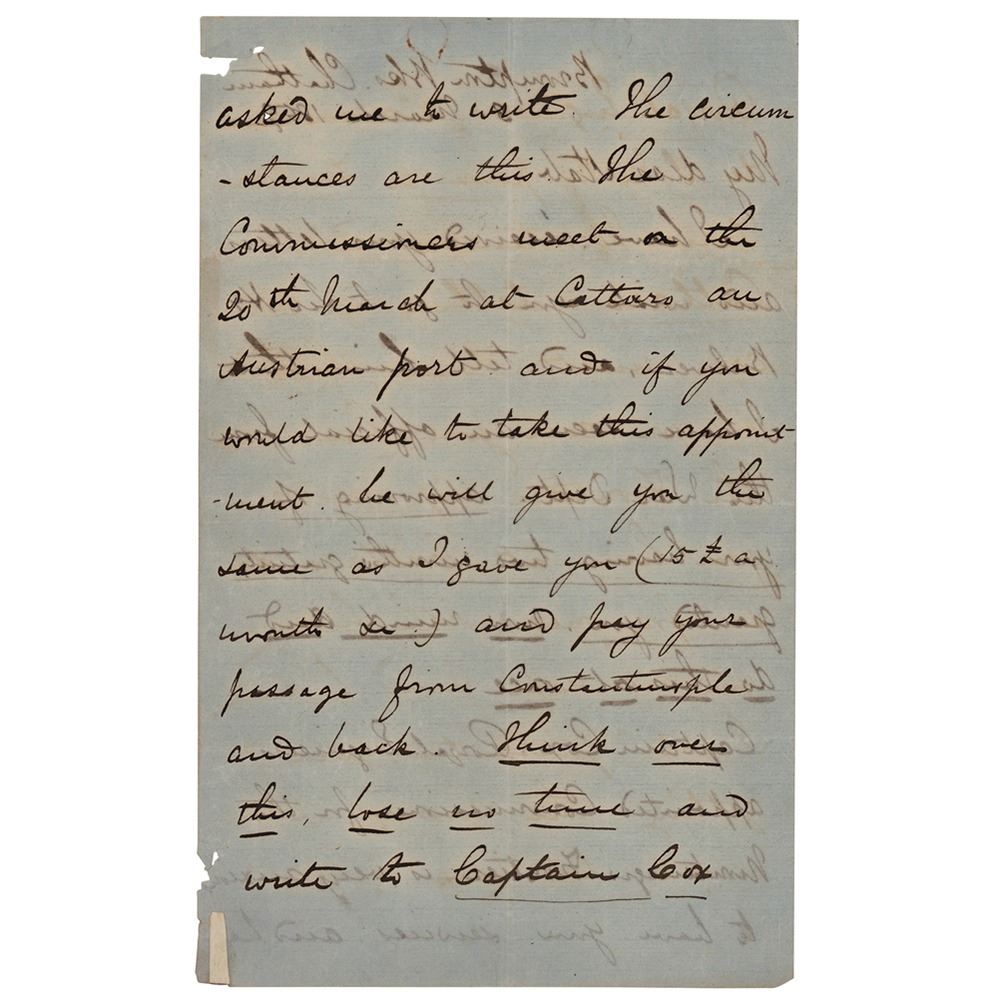 asked me to write. The circum
-stances are this. The
Commissioners meet on the
20th March at Cattaro an
Austrian port and if you
would like to take this appoint
-ment. he will give you the
same as I gave you (15 £ a
month &c.) and pay your
passage from Constantinople
and back. Think over
this, lose no time and
write to Captain Cox